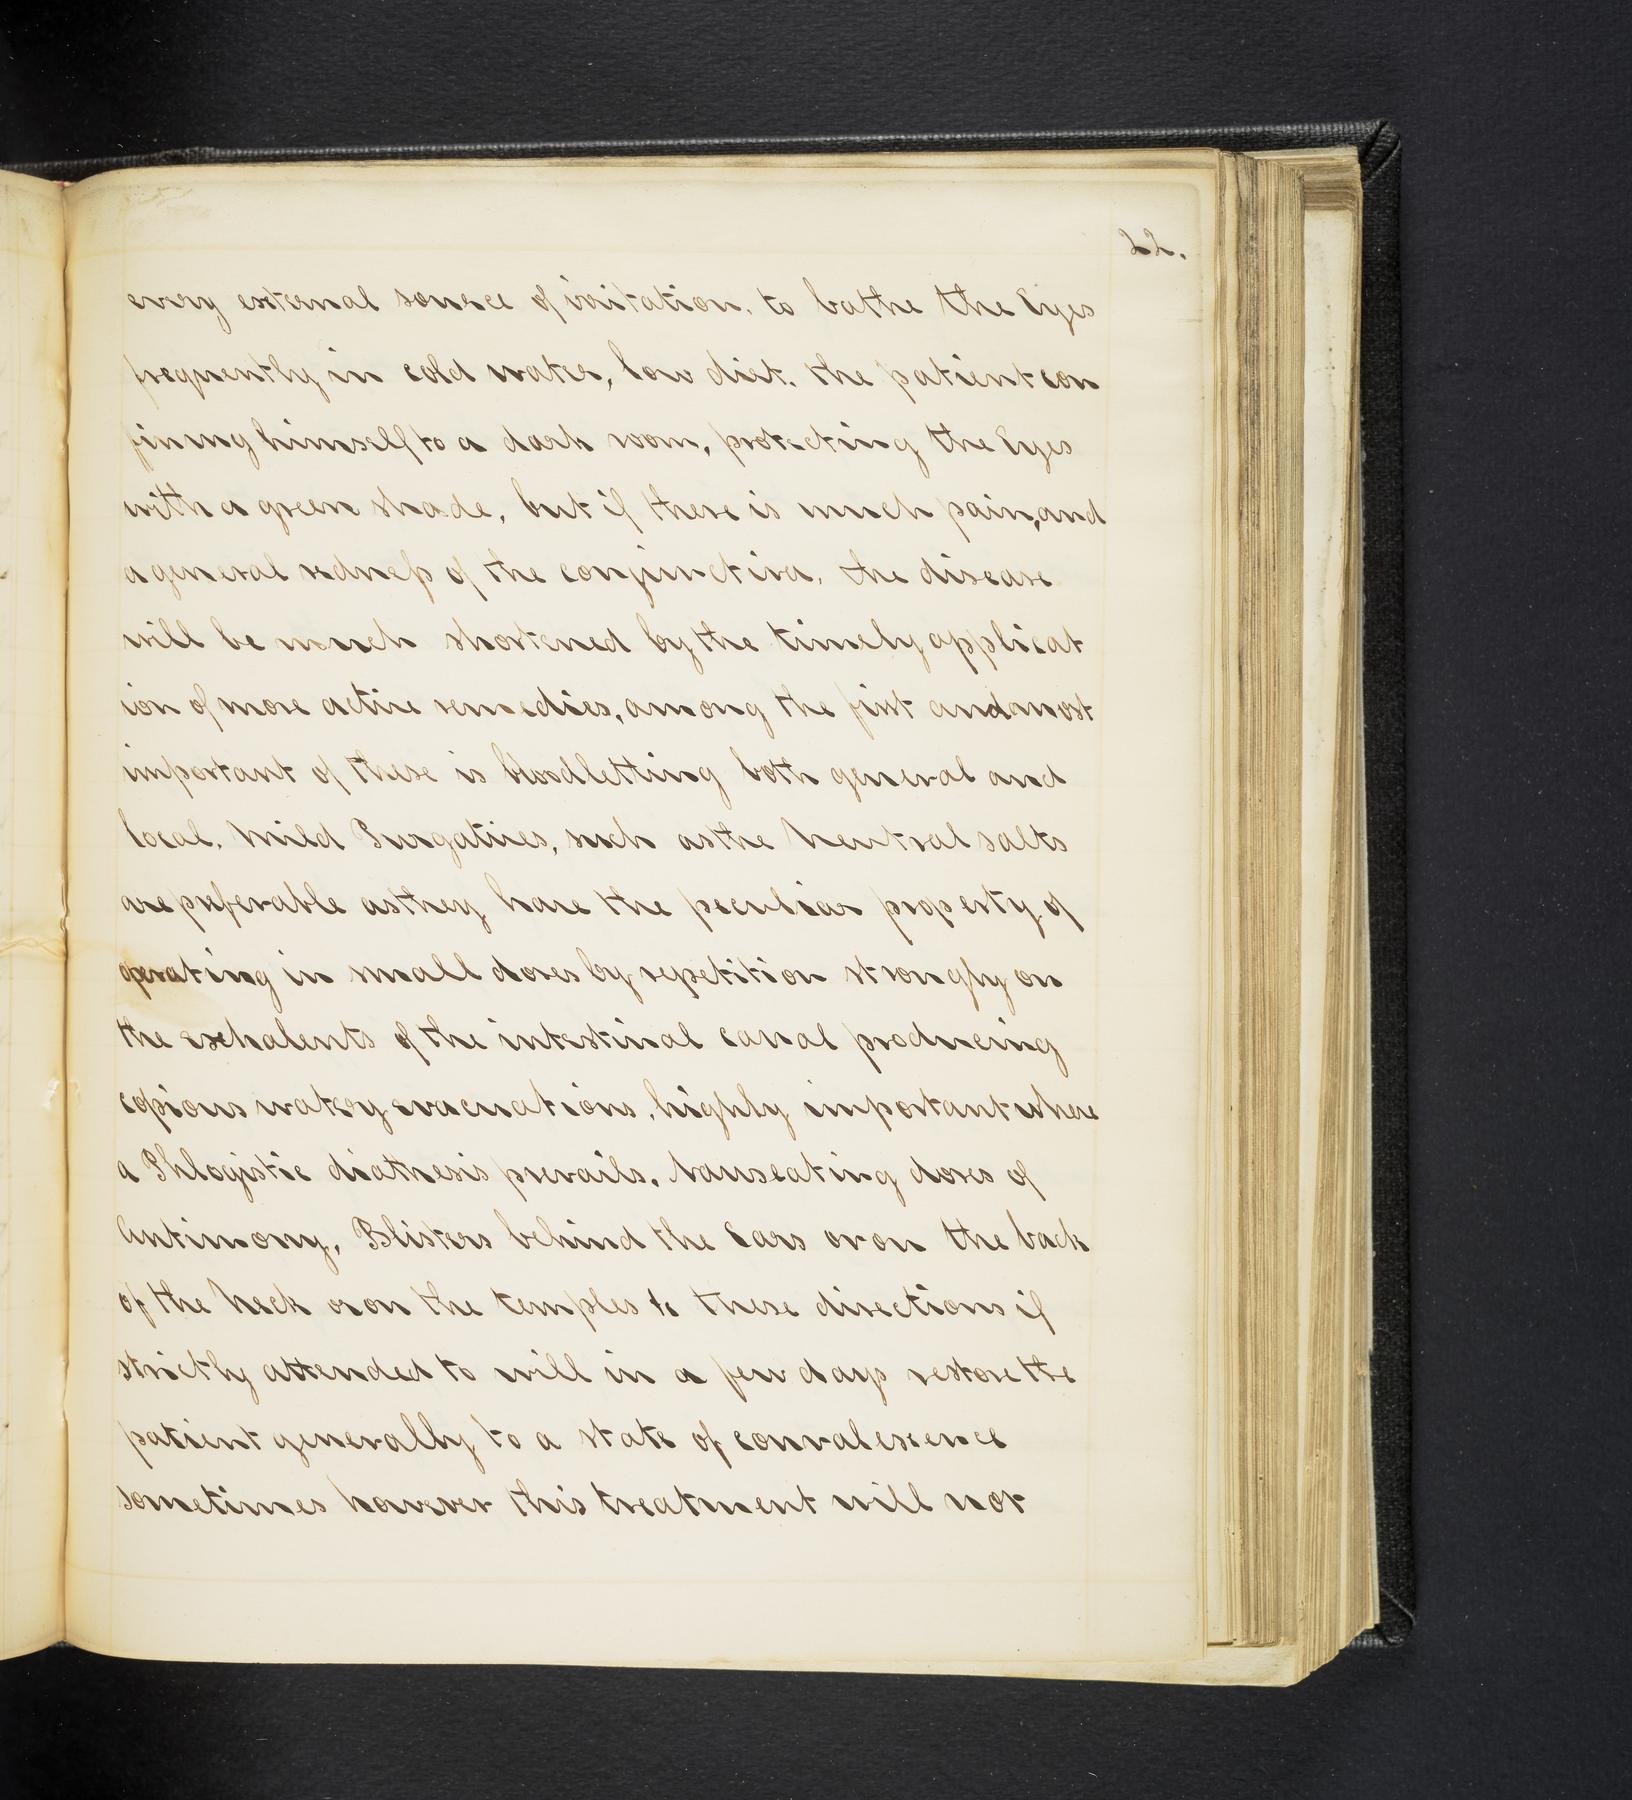 22.
every external source of irritation. to bathe the Eyes
frequently in cold water, low diet. the patient con
fining himself to a dark room, protecting the Eyes
with a green shade, but if there is much pain, and
a general redness of the conjunctiva, the disease
will be much shortened by the timely applicat
ion of more active remedies, among the first and most
important of these is bloodletting both general and
local. Mild Purgatives, such as the Neutral salts
are preferable as they have the peculiar property of
operating in small doses by repetition strongly on
the exhalents of the intestinal canal producing
copious watery evacuations, highly important where
a Phlogistic diathesis prevails. Nauseating doses of
Antimony, Blisters behind the Ears or on the back
of the Neck or on the temples to these directions if
strictly attended to will in a few days restore the
patient generally to a state of convalescence
sometimes however this treatment will not